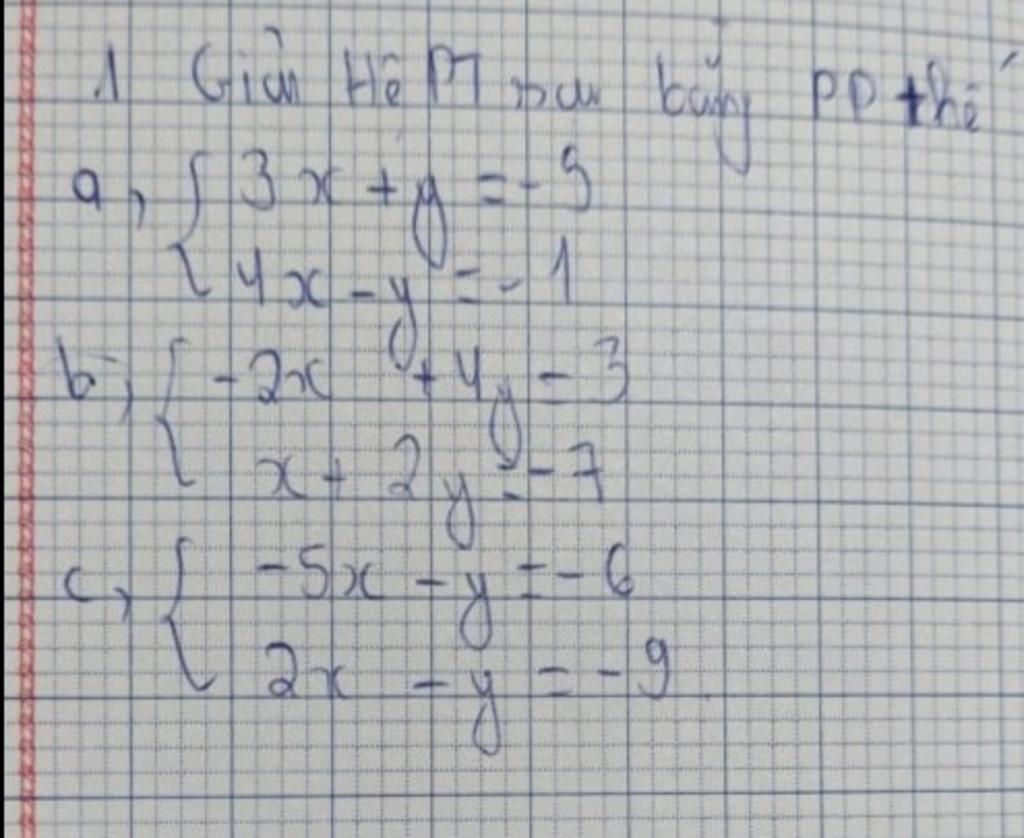 1 Giải Hệ PT sau bằng PP thế
a, { 3x + y = -9
4x - y = -1
b, { -2x + 4y = 3
x + 2y = -7
c, { -5x - y = -6
2x - y = -9